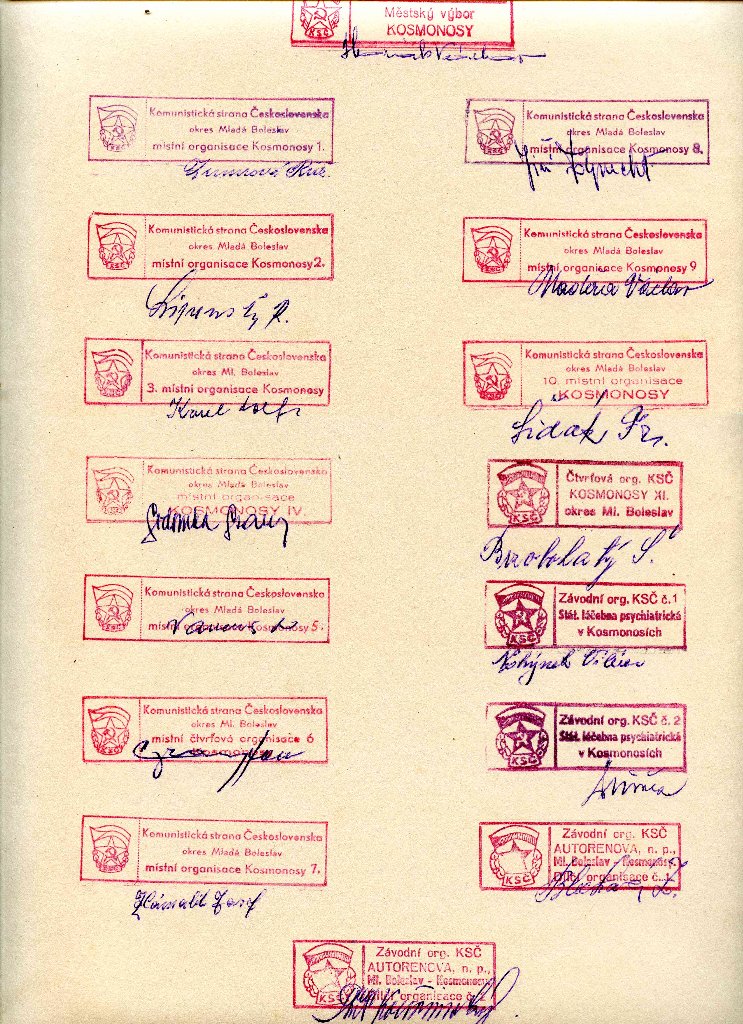 Městský výbor
KOSMONOSY
KSČ
Komunistická strana Československa
okres Mladá Boleslav
místní organisace Kosmonosy 1.
KSČ
Komunistická strana Československa
okres Mladá Boleslav
místní organisace Kosmonosy 2.
KSČ
Komunistická strana Československa
okres Ml. Boleslav
3. místní organisace Kosmonosy
KSČ
Karel
Komunistická strana Československa
okres Mladá Boleslav
místní organisace
KOSMONOSY IV.
KSČ
Komunistická strana Československa
okres Mladá Boleslav
místní organisace Kosmonosy 5.
KSČ
Komunistická strana Československa
okres Ml. Boleslav
místní čtvrťová organisace 6
Kosmonosy
KSČ
Komunistická strana Československa
okres Mladá Boleslav
místní organisace Kosmonosy 7.
KSČ
Josef
Komunistická strana Československa
okres Mladá Boleslav
místní organisace Kosmonosy 8.
KSČ
Jiří
Komunistická strana Československa
okres Mladá Boleslav
místní organisace Kosmonosy 9
KSČ
Václav
Komunistická strana Československa
okres Mladá Boleslav
10. místní organisace
KOSMONOSY
KSČ
Šidák Fr.
Čtvrťová org. KSČ
KOSMONOSY XI.
okres Ml. Boleslav
KSČ
Brzobohatý S.
Závodní org. KSČ č.1
Stát. léčebna psychiatrická
v Kosmonosích
KSČ
Závodní org. KSČ č. 2
Stát. léčebna psychiatrická
v Kosmonosích
KSČ
Závodní org. KSČ
AUTORENOVA, n. p.,
Ml. Boleslav - Kosmonosy
Dílčí organisace č.
KSČ
Závodní org. KSČ
AUTORENOVA, n. p.,
Ml. Boleslav - Kosmonosy
organisace č.
KSČ